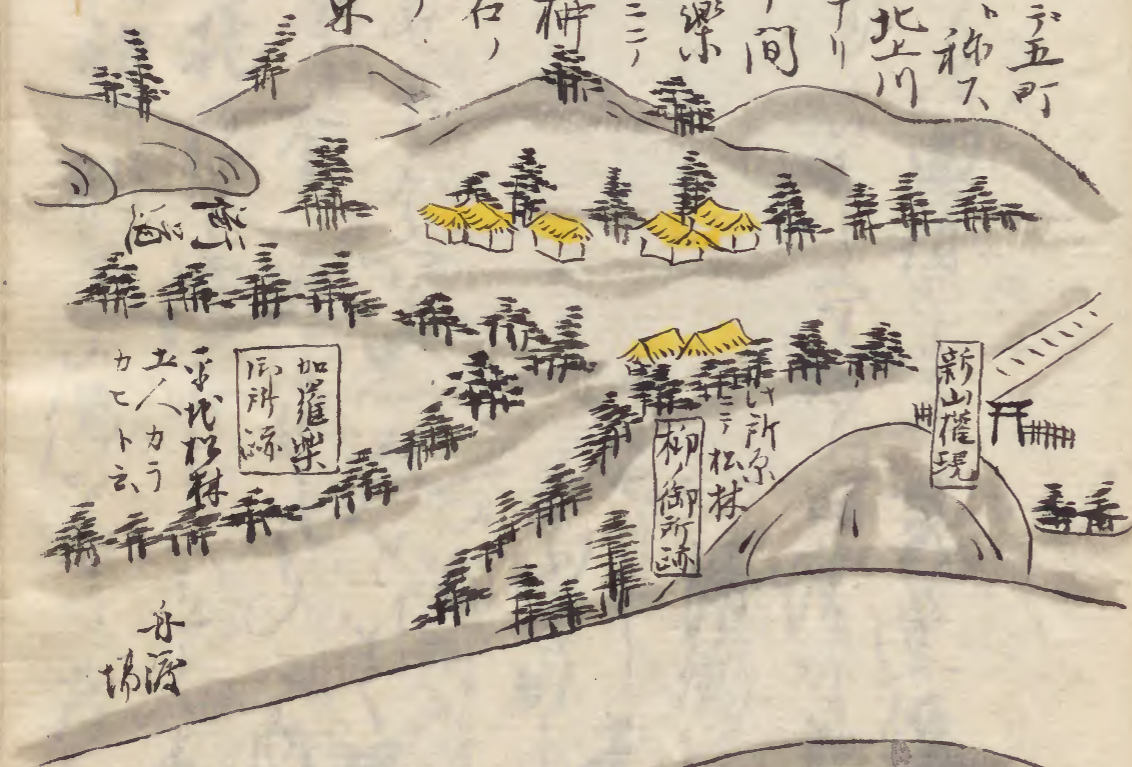 五町
称ス
北上川
ナリ
間
樂
柵
石ノ
新山權現
此所原
ニテ松林
柳ノ御所跡
加羅樂
御所跡
平地松林
土人カラ
カヒト云
舟渡
場